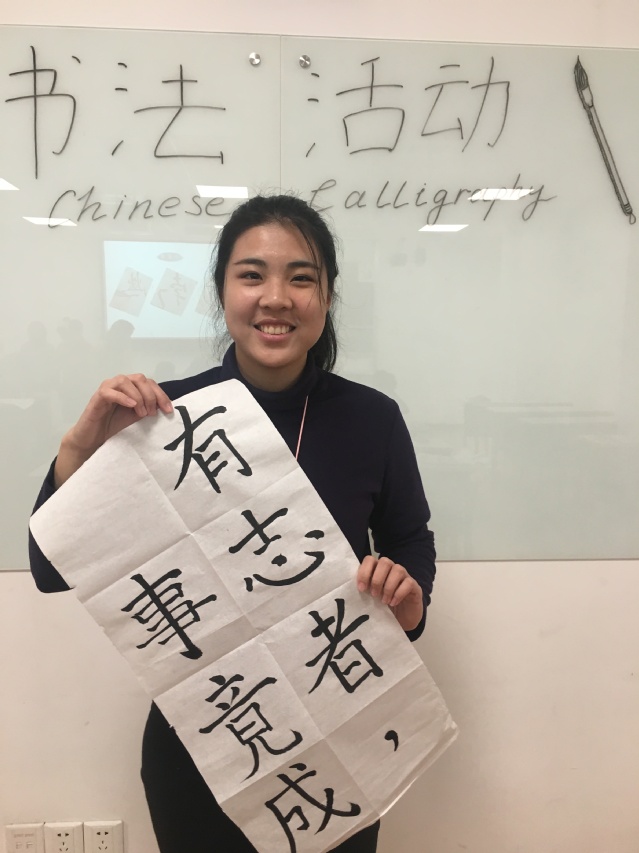 书法 活动
Chinese Calligraphy
有志者，
事竟成